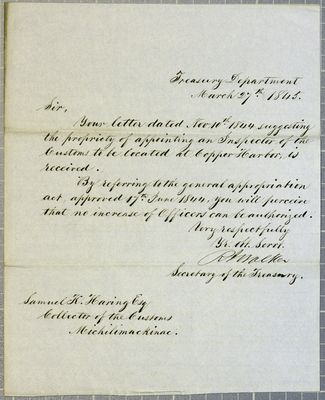 Treasury Department
March 27th 1845.
Sir,
Your letter dated Nov 10th 1844 suggesting
the propriety of appointing an Inspector of the
Customs to be located at Copper Harbor, is
received.
By referring to the general appropriation
act, approved 17th June 1844, you will perceive
that no increase of Officers can be authorized.
Very respectfully
Yr. Ob. Servt.
R J Walker
Secretary of the Treasury.
Samuel K. Haring Esq
Collector of the Customs
Michilimackinac.